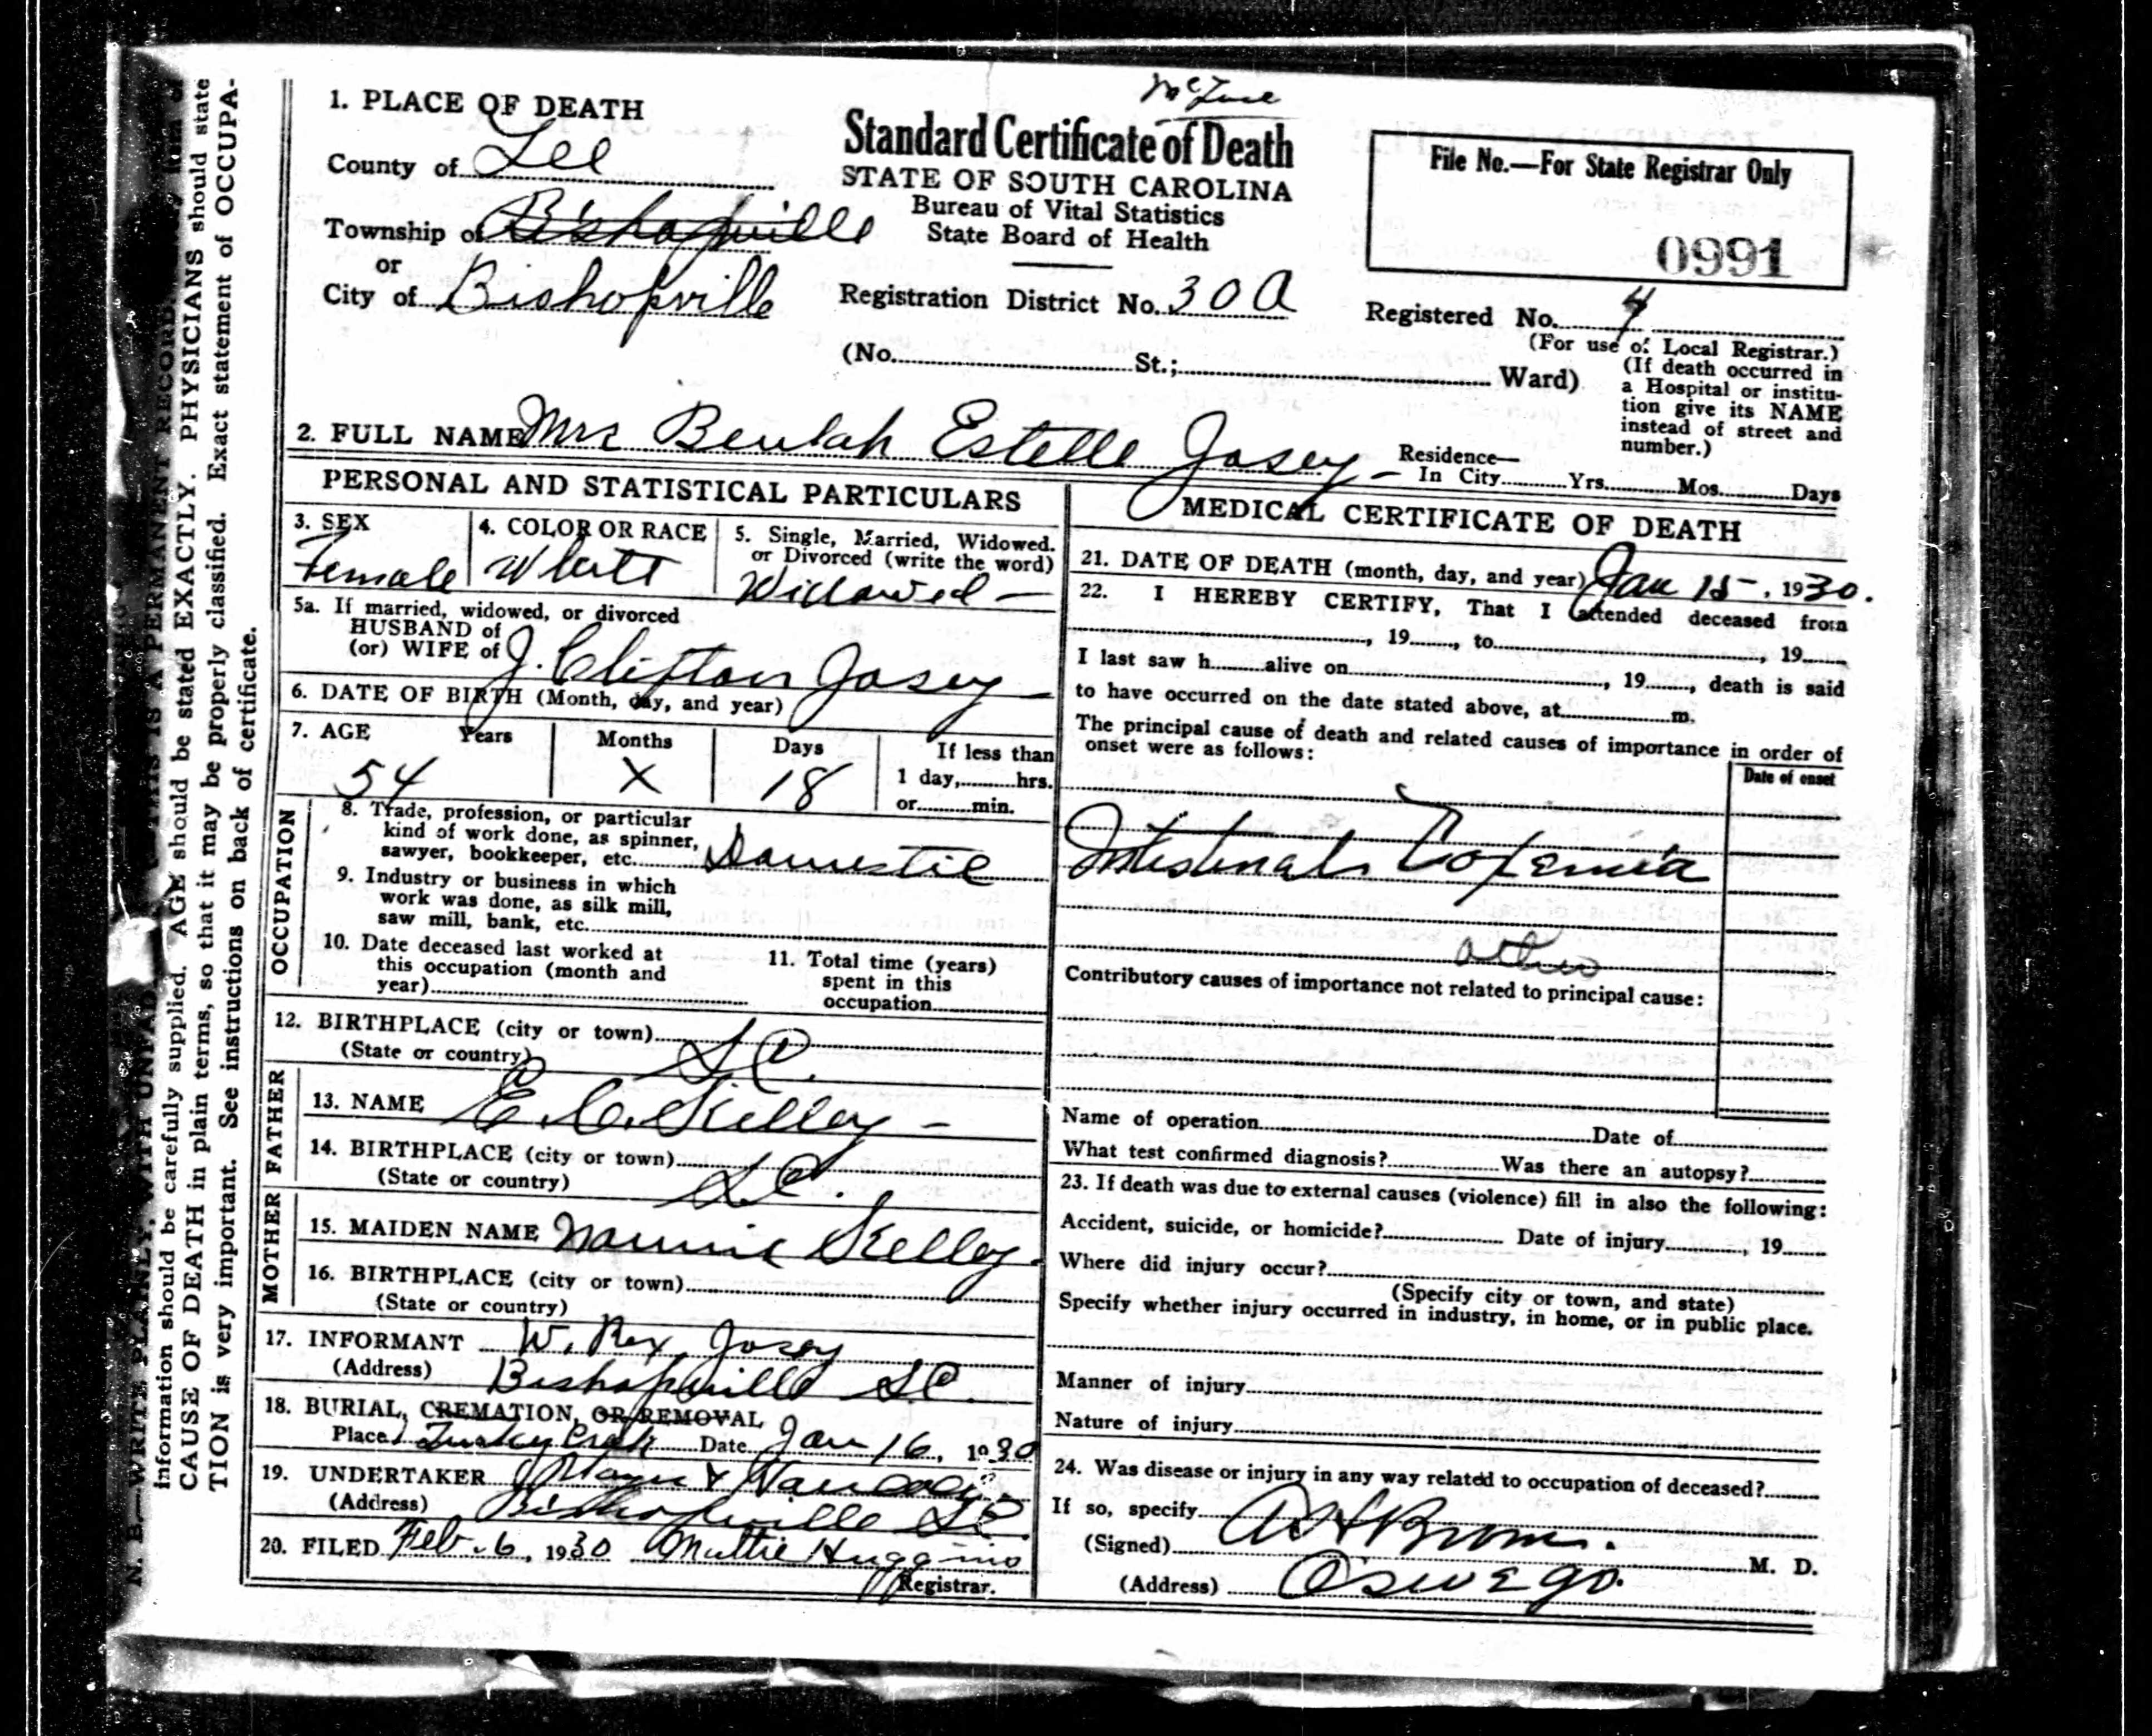 N. B.—WRITE PLAINLY, WITH UNFAD THIS IS A PERMANENT RECORD
information should be carefully supplied. AGE should be stated EXACTLY. PHYSICIANS should state
CAUSE OF DEATH in plain terms, so that it may be properly classified. Exact statement of OCCUPA-
TION is very important. See instructions on back of certificate.
1. PLACE OF DEATH
County of Lee
Township of Bishopville
or
City of Bishopville
Standard Certificate of Death
STATE OF SOUTH CAROLINA
Bureau of Vital Statistics
State Board of Health
Registration District No. 30 A
(No. St.; Ward)
File No.—For State Registrar Only
0991
Registered No. 4
(For use of Local Registrar.)
(If death occurred in
a Hospital or institu-
tion give its NAME
instead of street and
number.)
2. FULL NAME Mrs Beulah Estelle Josey
Residence—
In City Yrs. Mos. Days
PERSONAL AND STATISTICAL PARTICULARS
3. SEX
Female
4. COLOR OR RACE
White
5. Single, Married, Widowed.
or Divorced (write the word)
Widowed
5a. If married, widowed, or divorced
HUSBAND of
(or) WIFE of J. Clifton Josey
6. DATE OF BIRTH (Month, day, and year)
7. AGE Years Months Days If less than
54 X 18 1 day, hrs.
or min.
OCCUPATION
8. Trade, profession, or particular
kind of work done, as spinner,
sawyer, bookkeeper, etc. Domestic
9. Industry or business in which
work was done, as silk mill,
saw mill, bank, etc.
10. Date deceased last worked at
this occupation (month and
year)
11. Total time (years)
spent in this
occupation
12. BIRTHPLACE (city or town)
(State or country) S.C.
FATHER
13. NAME E. C. Skelley
14. BIRTHPLACE (city or town)
(State or country) S.C.
MOTHER
15. MAIDEN NAME Nannie Skelley
16. BIRTHPLACE (city or town)
(State or country)
17. INFORMANT W. Rex Josey
(Address) Bishopville S.C.
18. BURIAL, CREMATION, OR REMOVAL
Place Date Jan 16, 1930
19. UNDERTAKER
(Address) Bishopville S.C.
20. FILED Feb. 6, 1930 Mattie Huggins
Registrar.
MEDICAL CERTIFICATE OF DEATH
21. DATE OF DEATH (month, day, and year) Jan 15, 1930.
22. I HEREBY CERTIFY, That I attended deceased from
, 19 , to , 19
I last saw h alive on , 19 , death is said
to have occurred on the date stated above, at m.
The principal cause of death and related causes of importance in order of
onset were as follows:
Date of onset
Intestinal Toxemia
other
Contributory causes of importance not related to principal cause:
Name of operation Date of
What test confirmed diagnosis? Was there an autopsy?
23. If death was due to external causes (violence) fill in also the following:
Accident, suicide, or homicide? Date of injury , 19
Where did injury occur?
(Specify city or town, and state)
Specify whether injury occurred in industry, in home, or in public place.
Manner of injury
Nature of injury
24. Was disease or injury in any way related to occupation of deceased?
If so, specify
(Signed) Brown. M. D.
(Address) Oswego.